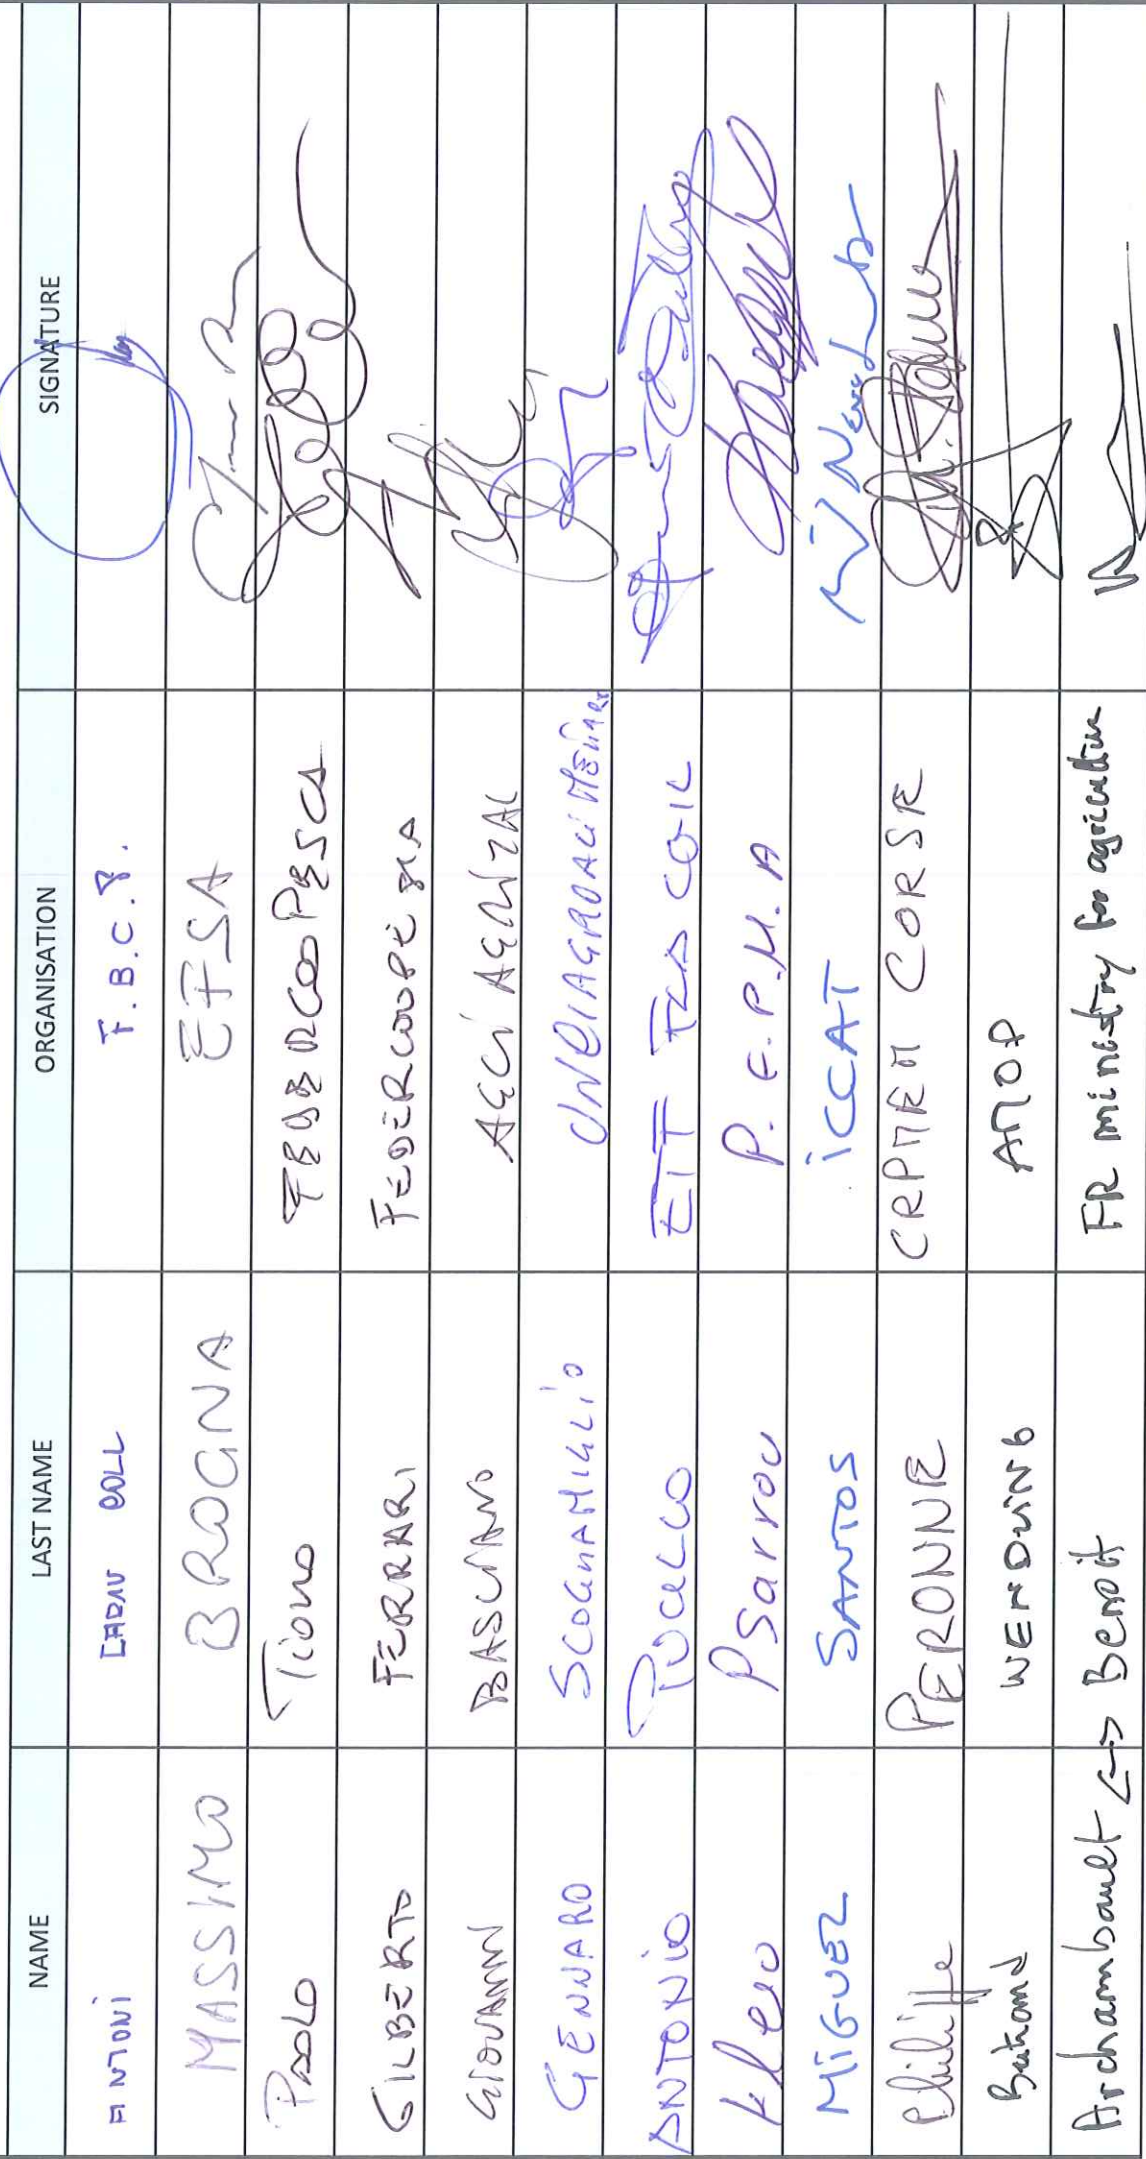 NAME LAST NAME ORGANISATION SIGNATURE
ANTONI GARAU COLL F.B.C.P.
MASSIMO BROGNA EFSA
PAOLO Tiozzo FEDERCOOPESCA
GILBERTO FERRARI FEDERCOOPESCA
GIOVANNI BASCIANO AGCI AGRITAL
GENNARO SCOGNAMIGLIO
ANTONIO PUCILLO
Kleio Psarrou P.E.P.M.A
MiGUEL SANTOS iCCAT
Philippe PERONNE CRPMEM CORSE
Bertrand WENDLING
Archambault <-> Benoit FR ministry for agriculture